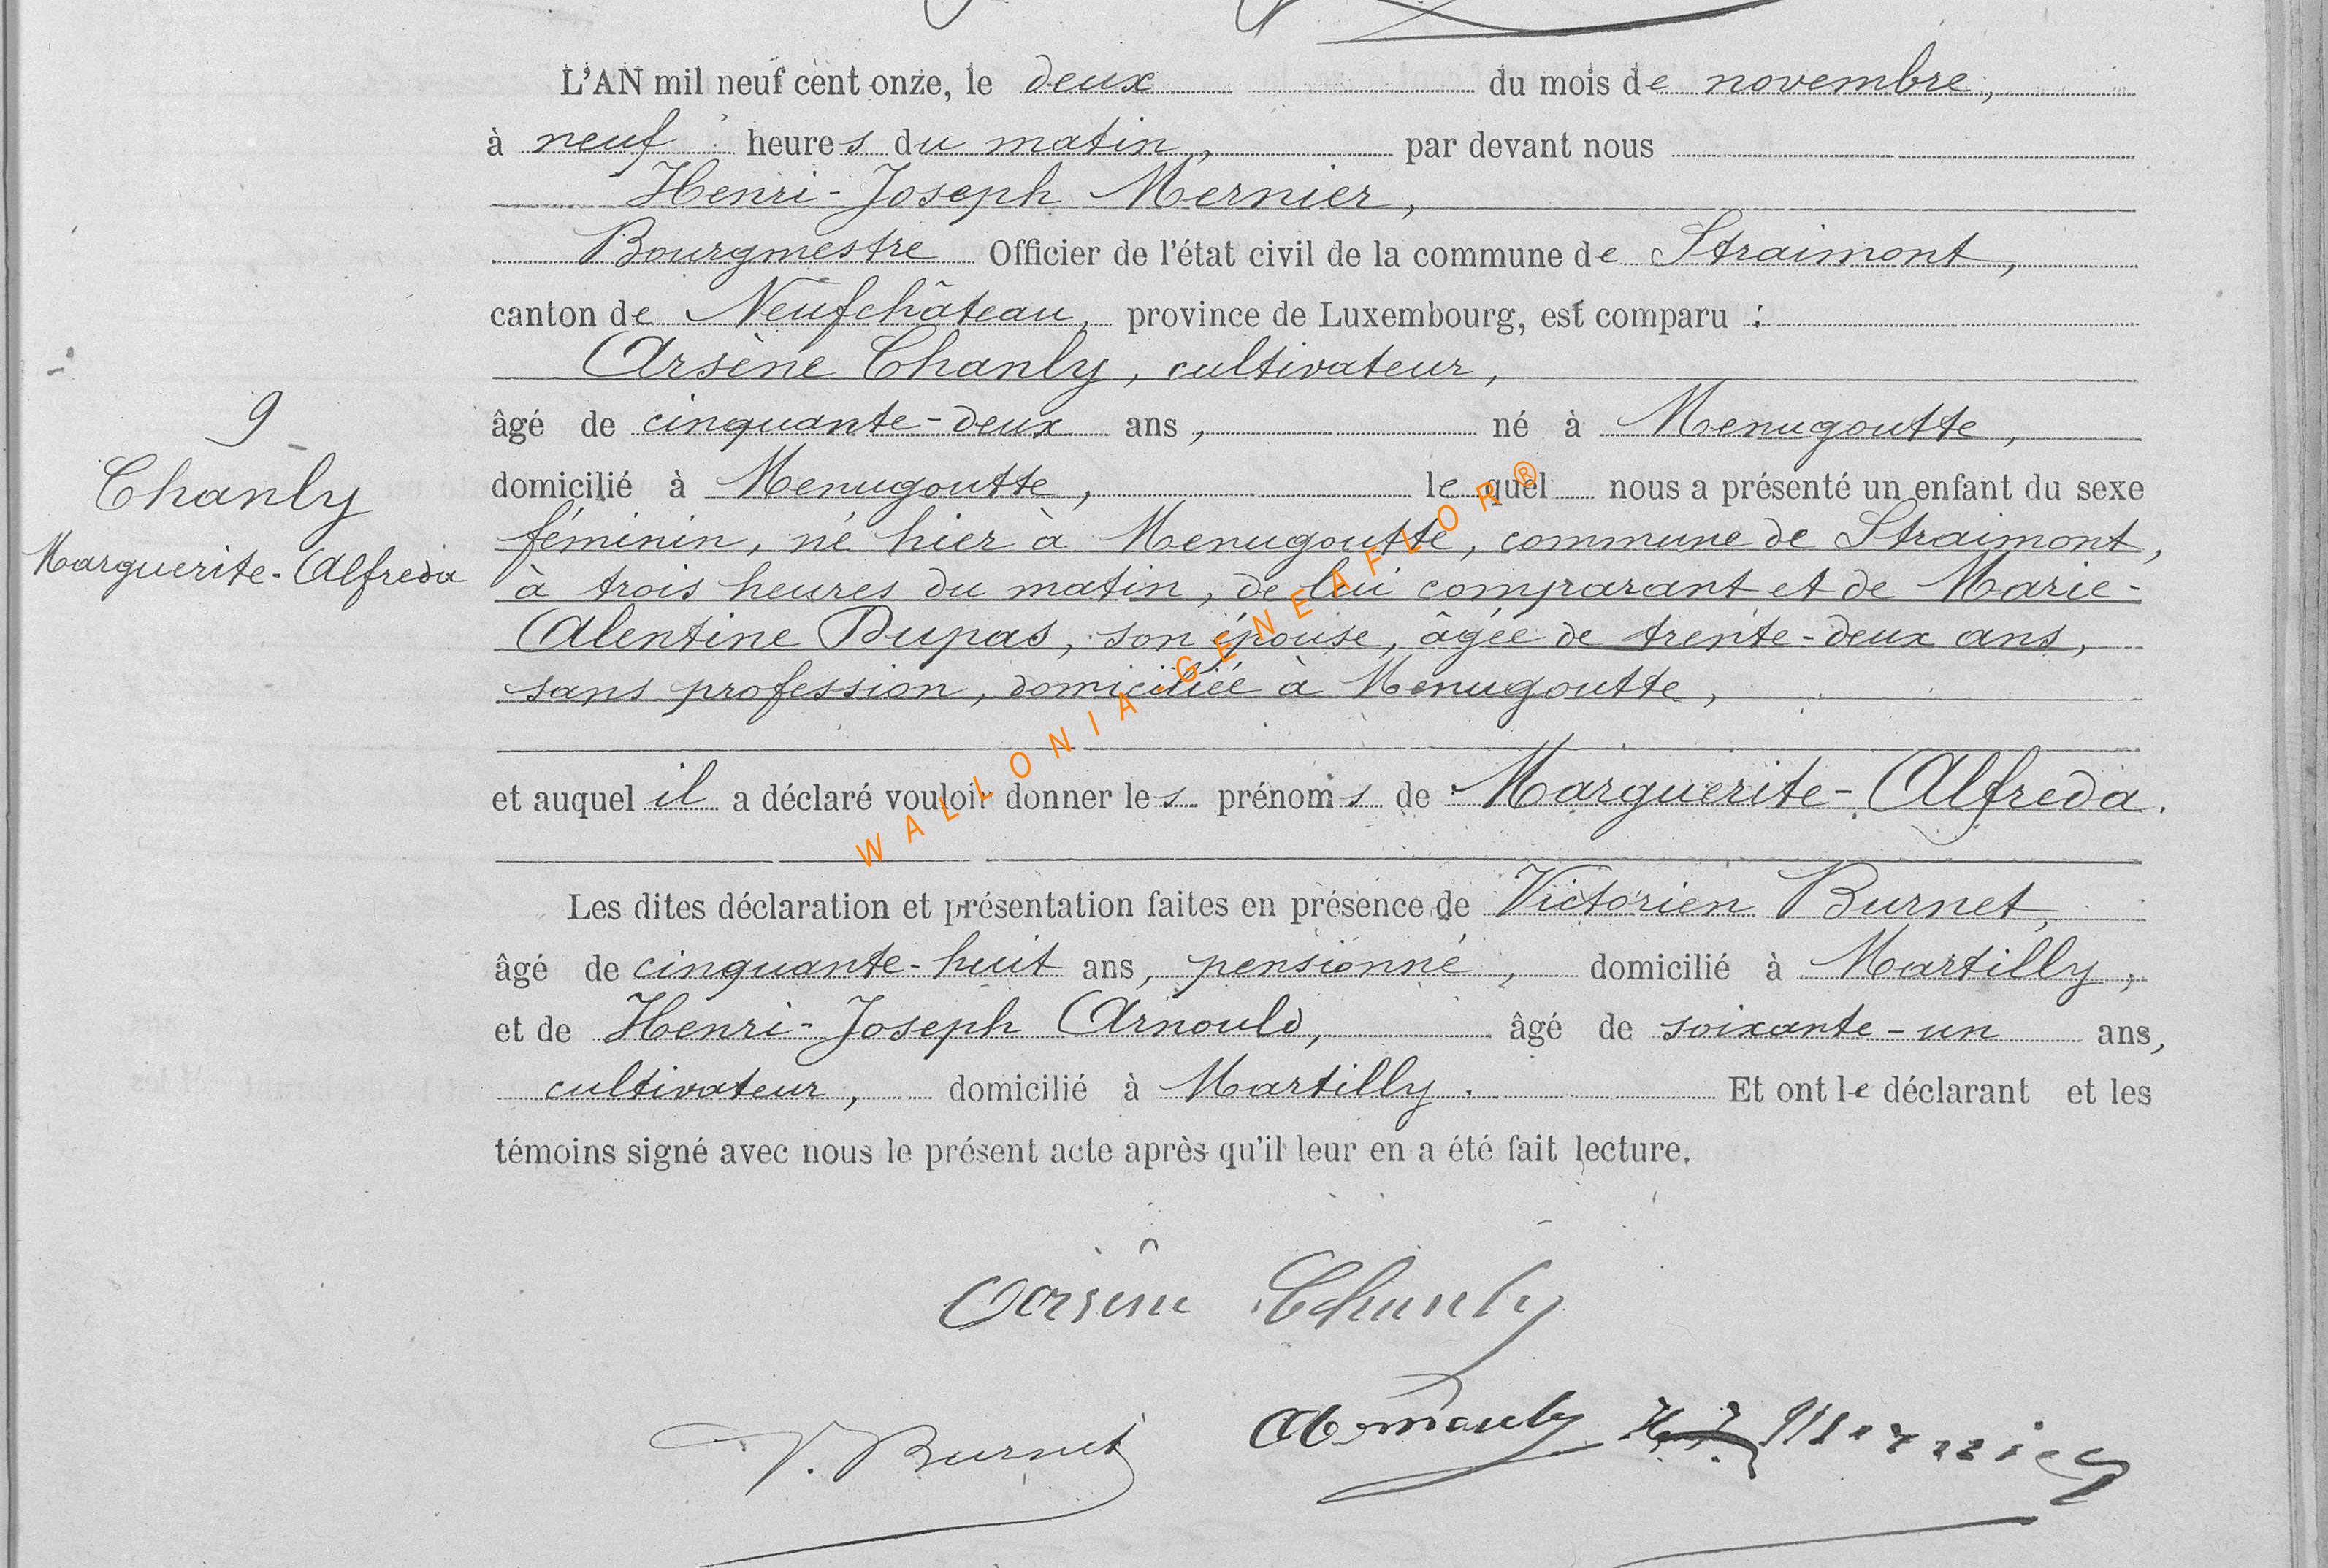 L'AN mil neuf cent onze, le deux du mois de novembre,
à neuf heures du matin, par devant nous
Henri-Joseph Mernier,
Bourgmestre Officier de l'état civil de la commune de Straimont,
canton de Neufchâteau, province de Luxembourg, est comparu :
Arsène Chanly, cultivateur,
âgé de cinquante-deux ans, né à Menugoutte,
domicilié à Menugoutte, le quel nous a présenté un enfant du sexe
féminin, né hier à Menugoutte, commune de Straimont,
à trois heures du matin, de lui comparant et de Marie-
Alentine Dupas, son épouse, âgée de trente-deux ans,
sans profession, domiciliée à Menugoutte,
et auquel il a déclaré vouloir donner les prénoms de Marguerite-Alfreda.
Les dites déclaration et présentation faites en présence de Victorien Burnet,
âgé de cinquante-huit ans, pensionné, domicilié à Martilly,
et de Henri-Joseph Arnould, âgé de soixante-un ans,
cultivateur, domicilié à Martilly. Et ont le déclarant et les
témoins signé avec nous le présent acte après qu'il leur en a été fait lecture.
9
Chanly
Marguerite-Alfreda
WALLONIA-GENEAFLOR®
Arsène Chanly
V. Burnet
H J Mernier